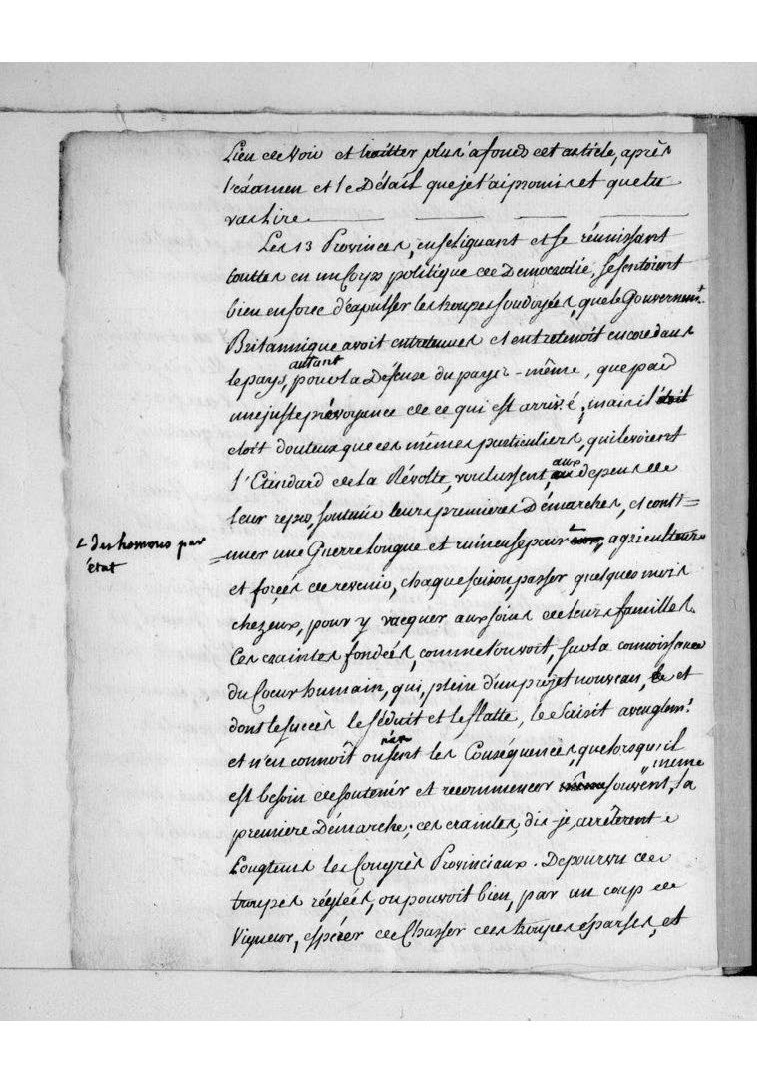 Lieu de voir et traitter plus a fonds cet article, après
l'éxamen et le Détail que je t'ai promis et que tu
vas lire.
Les 13 Provinces, en se liguant et se réunissant
touttes en un Corps politique de Democratie, se sentoient
bien en force d'expulser les troupes soudoyées, que le Gouvernemt.
Britannique avoit entretenues et entretenoit encore dans
le pays, autant pour la Défense du pays-même, que par
une juste prévoyance de ce qui est arrivé; mais il étoit
etoit douteux que ces mêmes particuliers, qui levoient
l'Etendard de la Révolte, voulussent, aux depens de
leur repos, soutenir leurs premieres Démarches, et conti=
=nuer une Guerre longue et ruineuse pour agriculteurs
+ des hommes par
état
et forçés de revenir, chaque saison, passer quelques mois
chez eux, pour y vacquer aux soins de leurs familles.
Ces craintes fondées, comme l'on voit, sur la connoissance
du Coeur humain, qui, plein d'un projet nouveau, et
dont le succès le séduit et le flatte, le saisit aveuglemt.
et n'en connoît ou n'en sent les Conséquences, que lorsqu'il
est besoin de soutenir et recommencer même souvent, sa
premiere Démarche; ces craintes, dis-je, arrêterent
Longtems les Congrès Provinciaux. Depourvu de
troupes réglées, on pouvoit bien, par un coup de
Vigueur, espérer de Chasser des troupes éparses, et